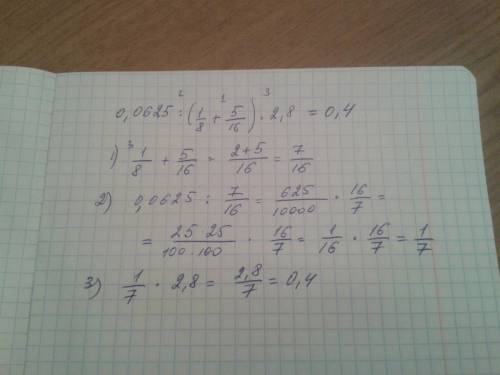 2 1 3
0,0625 : (1/8 + 5/16) · 2,8 = 0,4
1) ³1/8 + 5/16 = 2+5/16 = 7/16
2) 0,0625 : 7/16 = 625/10000 · 16/7 =
= 25 25/100·100 · 16/7 = 1/16 · 16/7 = 1/7
3) 1/7 · 2,8 = 2,8/7 = 0,4